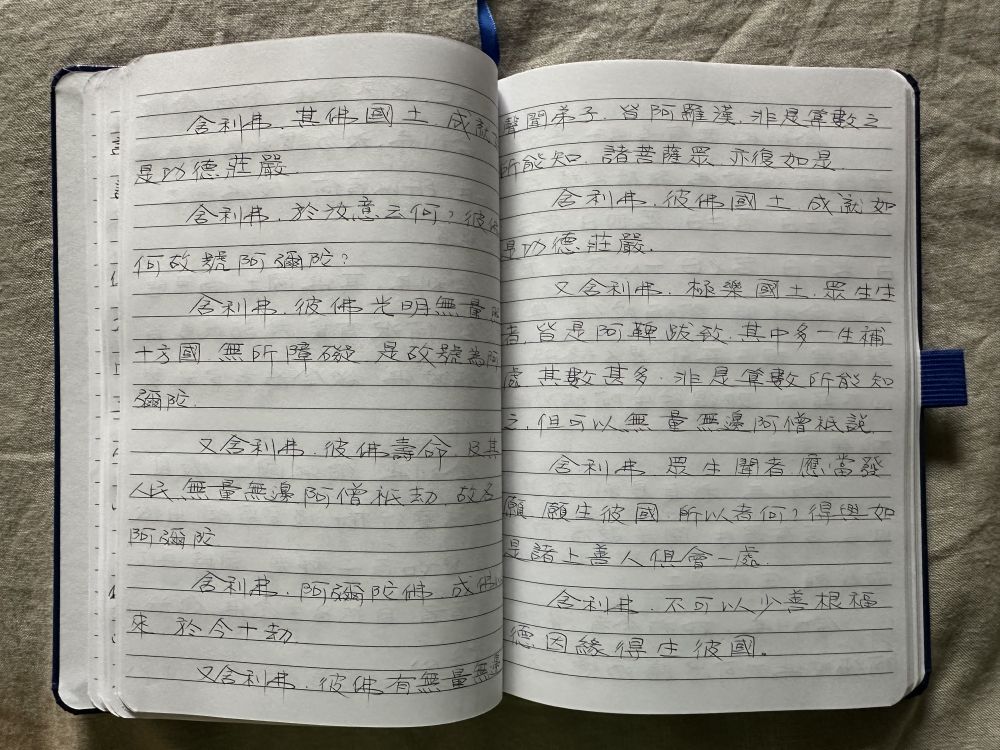 舍利弗．其佛國土．成就
是功德莊嚴．
舍利弗．於汝意云何？彼
何故號阿彌陀？
舍利弗．彼佛光明無量
十方國．無所障礙．是故號為阿
彌陀．
又舍利弗．彼佛壽命．及其
人民．無量無邊阿僧祇劫．故
阿彌陀
舍利弗．阿彌陀佛．成佛
來．於今十劫
又舍利弗．彼佛有無量無邊
聲聞弟子．皆阿羅漢．非是算數之
所能知．諸菩薩眾．亦復如是．
舍利弗．彼佛國土．成就如
是功德莊嚴．
又舍利弗．極樂國土．眾生生
者．皆是阿鞞跋致．其中多一生補
處．其數甚多．非是算數所能知
之．但可以無量無邊阿僧祇說．
舍利弗．眾生聞者．應當發
願．願生彼國．所以者何？得與如
是諸上善人俱會一處．
舍利弗．不可以少善根福
德因緣得生彼國。